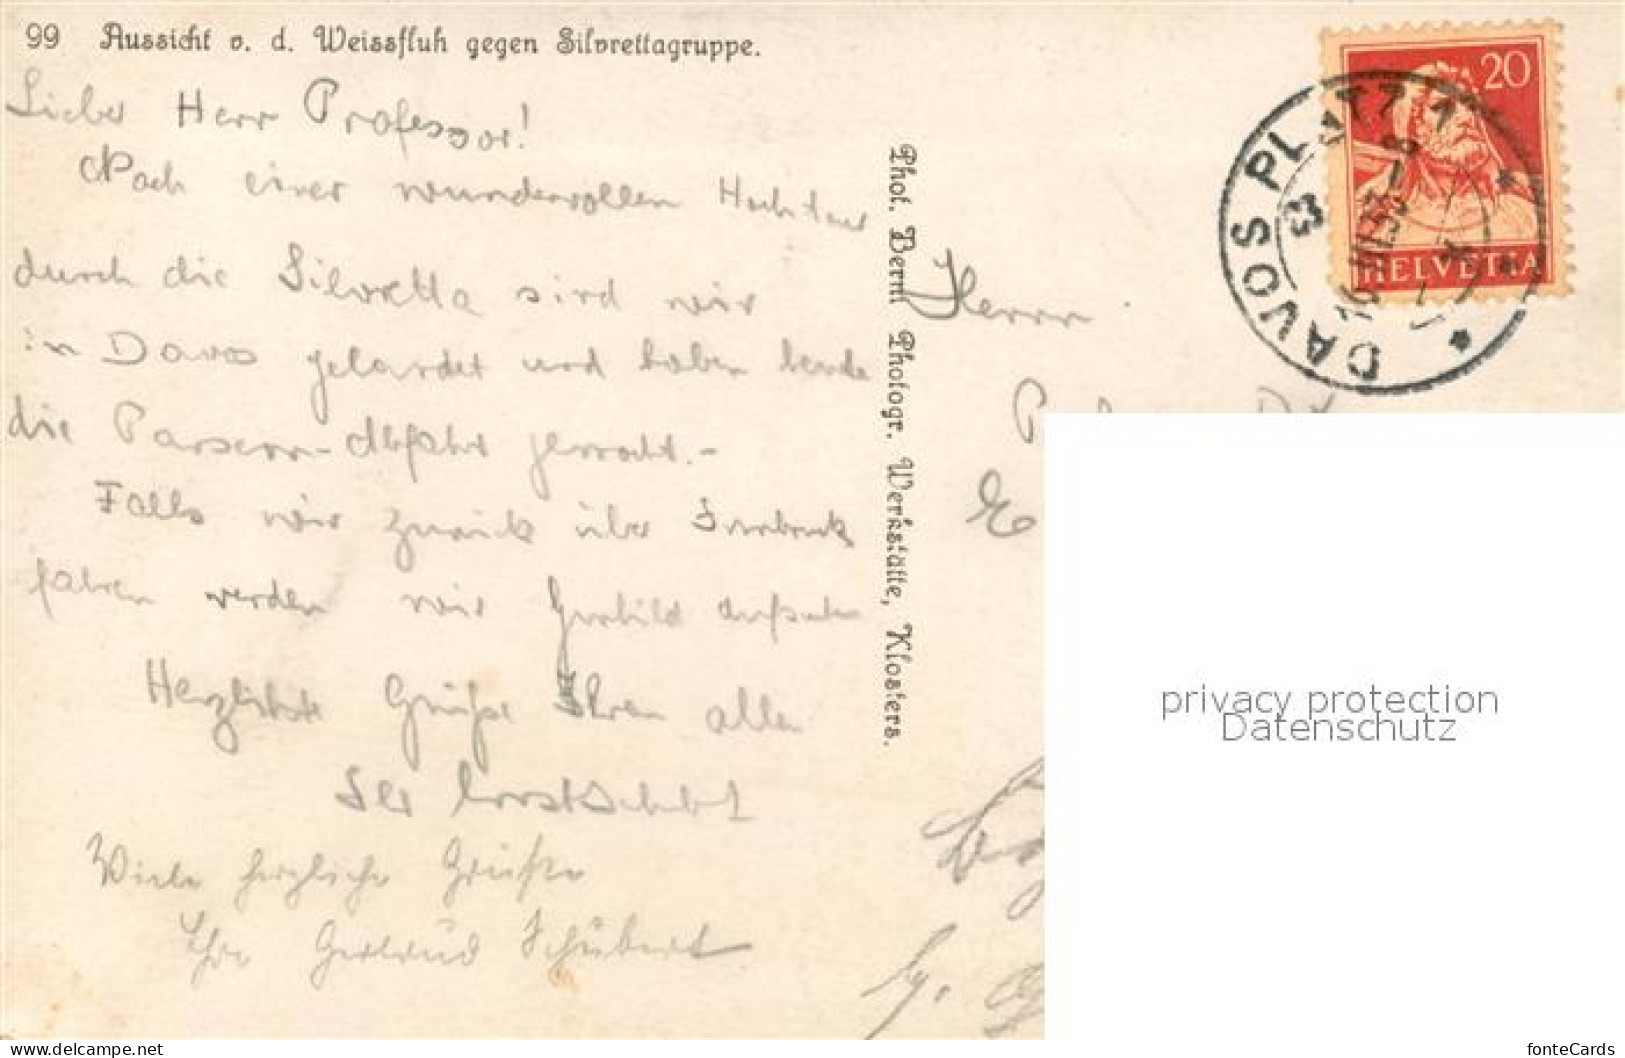 99 Aussicht v. d. Weissfluh gegen Silvrettagruppe.
Lieber Herr Professor!
Nach einer wundervollen Hochtour
durch die Silvretta sind wir
in Davos gelandet und haben heute
die Parsenn-Abfahrt gemacht.-
Falls wir zurück über Innsbruck
fahren werden wir
Herzlichste Grüße Ihren allen
Viele herzliche Grüße
Ihre Gertrud Schubert
Phot. Berni Photogr. Werkstätte, Klosters.
20
HELVETIA
DAVOS PLATZ 1
Herrn
privacy protection
Datenschutz
www.delcampe.net
fonteCards